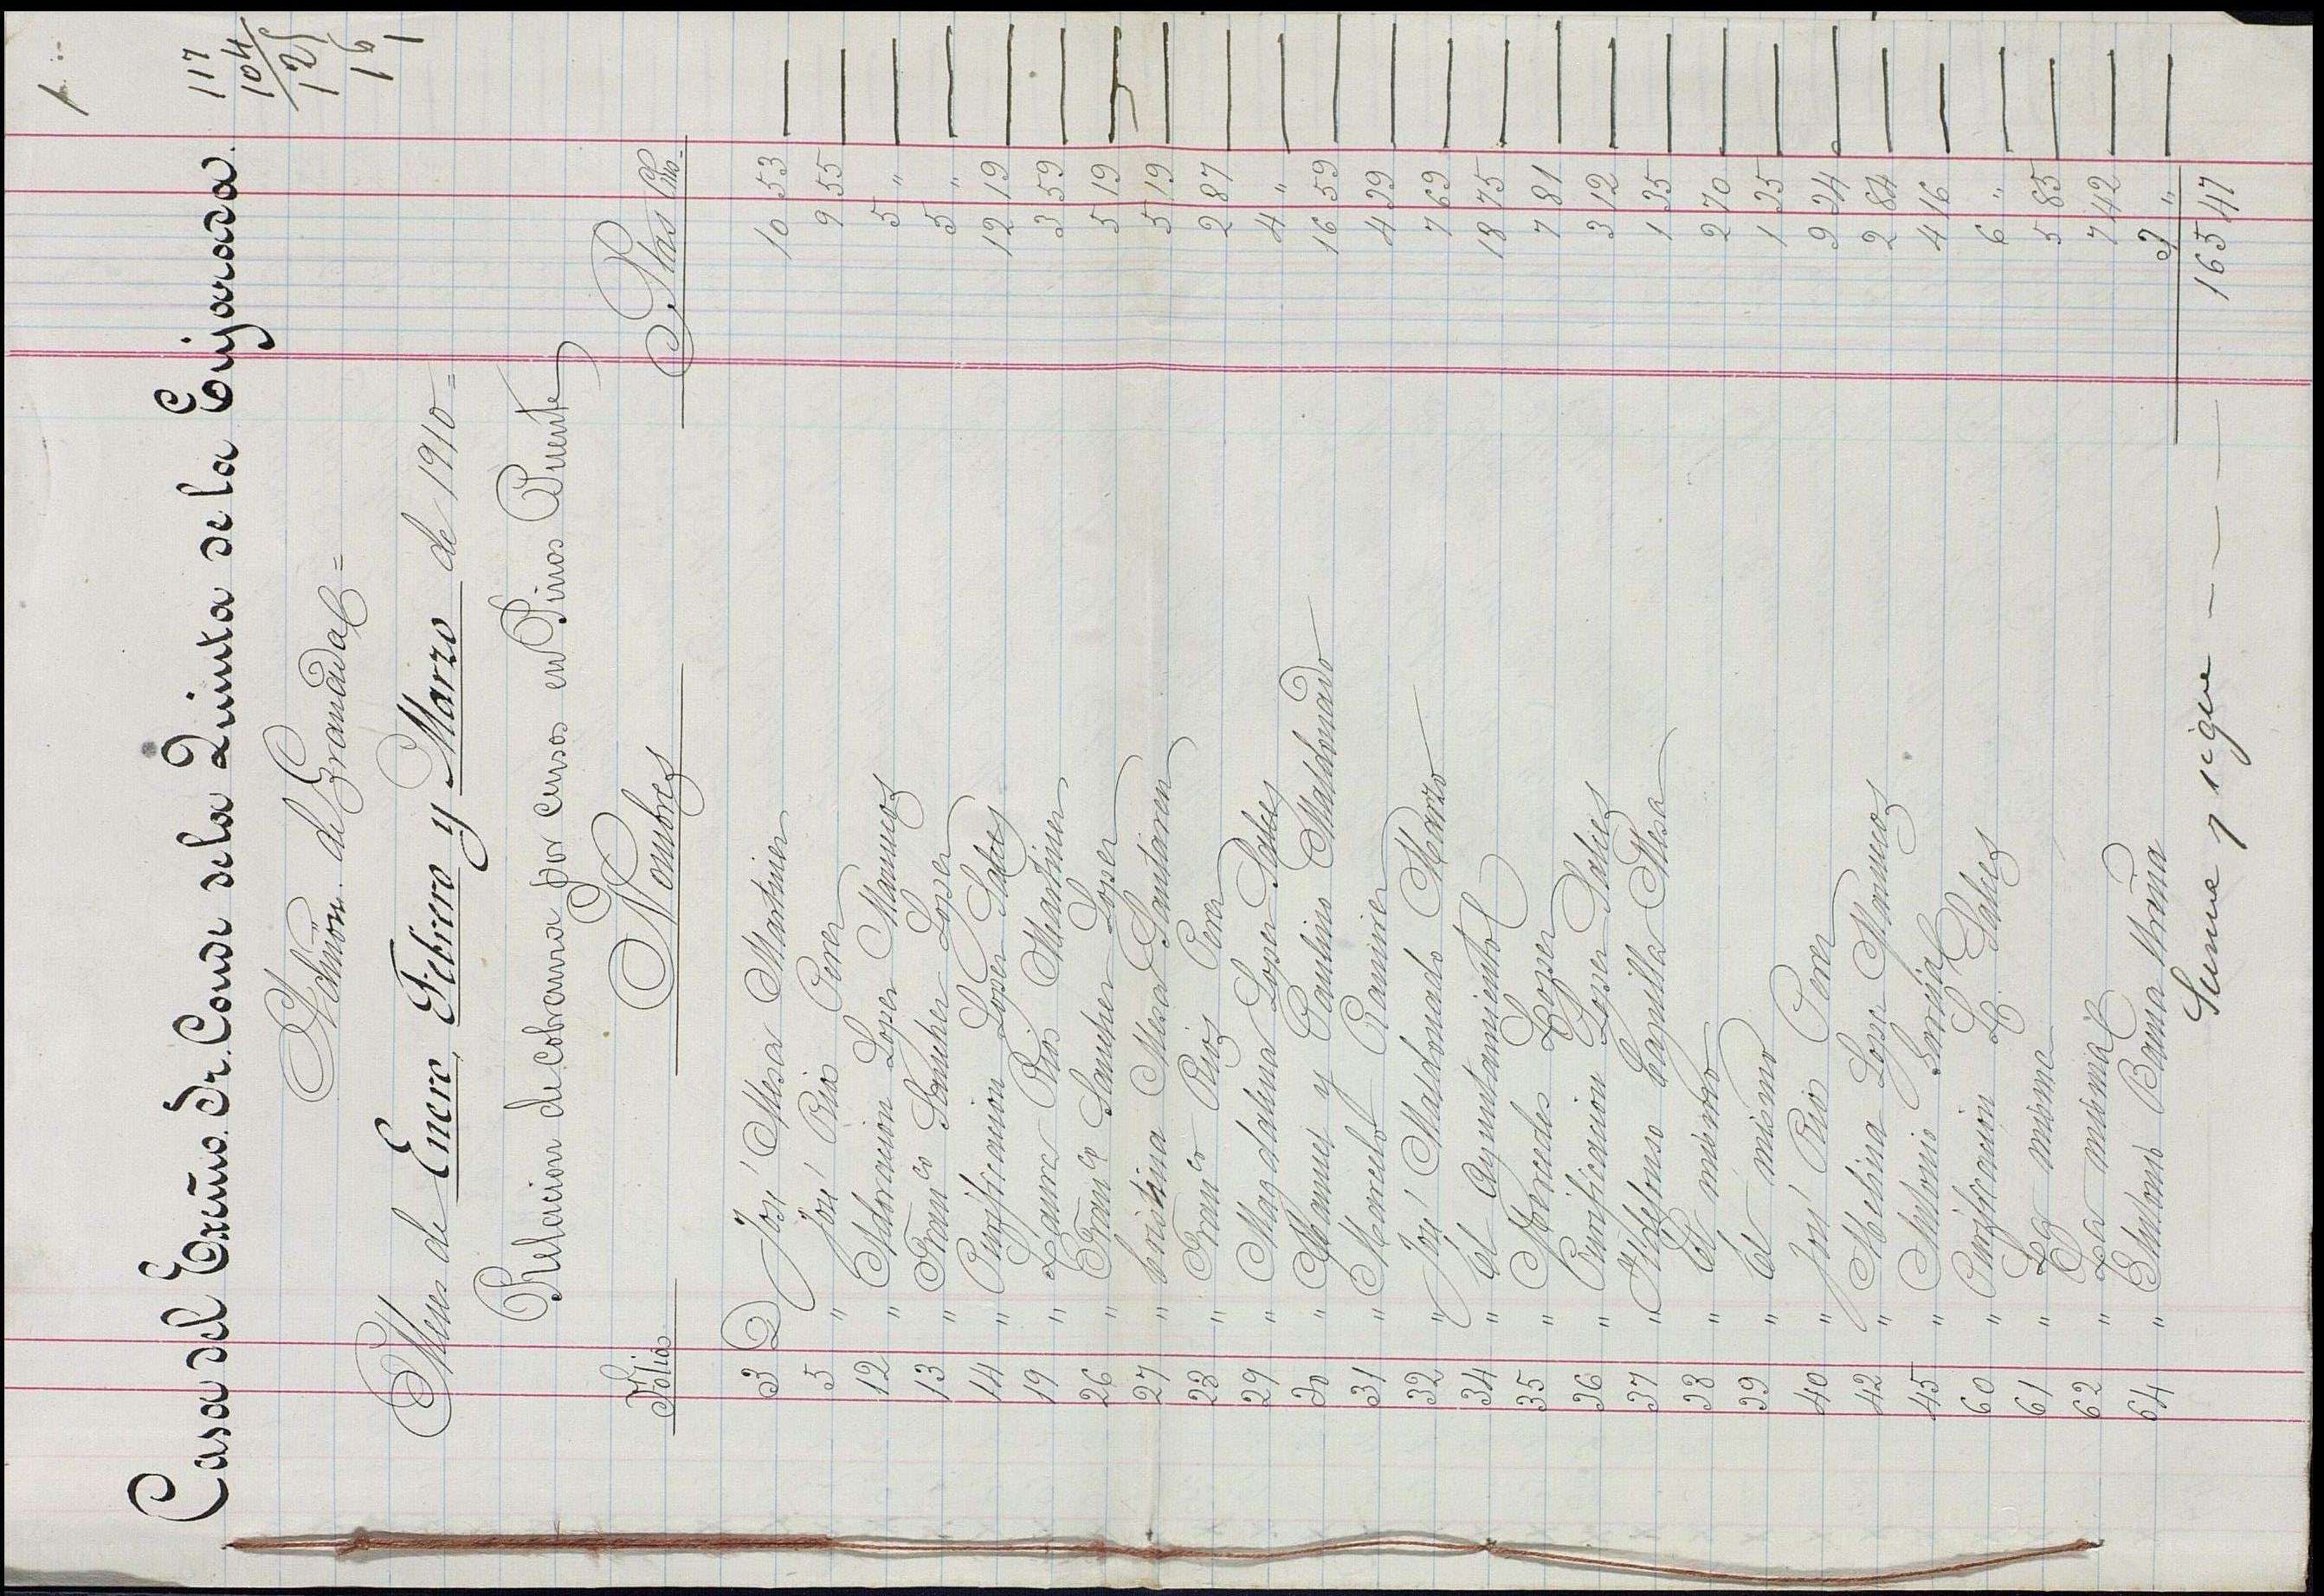 1
117
104
125
16
1
Casa del Excmo. Sr. Conde de la Quinta de la Enjarada.
Admon. de Granada =
Mes de Enero, Febrero y Marzo de 1910 =
Relacion de cobranza por censos en Pinos Puente
Folios Nombres Ptas Cms.
3 D José Mesa Martinez 10 53
5 " José Rios Perez 9 55
12 " Adoracion Lopez Mamuos 5 "
13 " Franco Sanchez Lopez 5 "
14 " Purificacion Lopez Sales 12 19
19 " Laura Rios Martinez 3 59
26 " Franco Sanchez Lopez 5 19
27 " Cristina Mesa Santaren 5 19
28 " Franco Rios Perez 2 87
29 " Magdalena Lopez Sales 4 "
30 " Mamés y Paulino Maldonado 16 59
31 " Marcelo Ramirez 4 39
32 " José Maldonado Manzo 7 69
34 " El Ayuntamiento 18 75
35 " Mercedes Lopez 7 81
36 " Purificacion Lopez Sales 3 12
37 " Ildefonso Capilla Mesa 1 35
38 " El mismo 2 70
39 " El mismo 1 35
40 " José Rios Perez 9 24
42 " Melina Lopez Mamuos 2 84
45 " Antonio Garcia 4 16
60 " Purificacion L. Sales 6 "
61 " La misma 5 85
62 " La misma 7 42
64 " Antonio Barma 3 "
Suma y sigue - - - 165 47